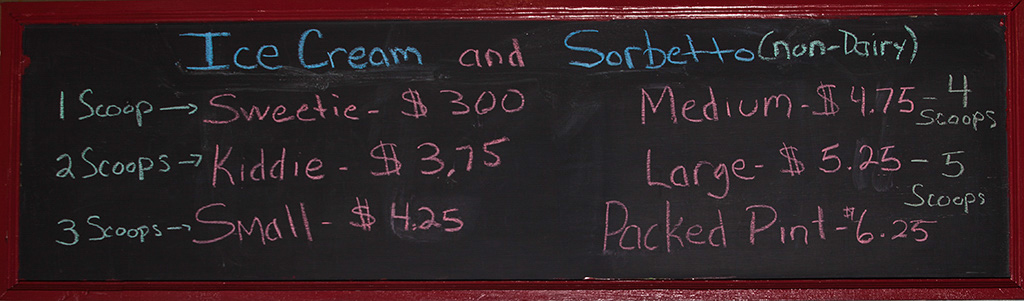 Ice Cream and Sorbetto (non-Dairy)
1 Scoop → Sweetie - $ 300
2 Scoops → Kiddie - $ 3,75
3 Scoops → Small - $ 4.25
Medium - $ 4.75 - 4 Scoops
Large - $ 5.25 - 5 Scoops
Packed Pint - $6.25